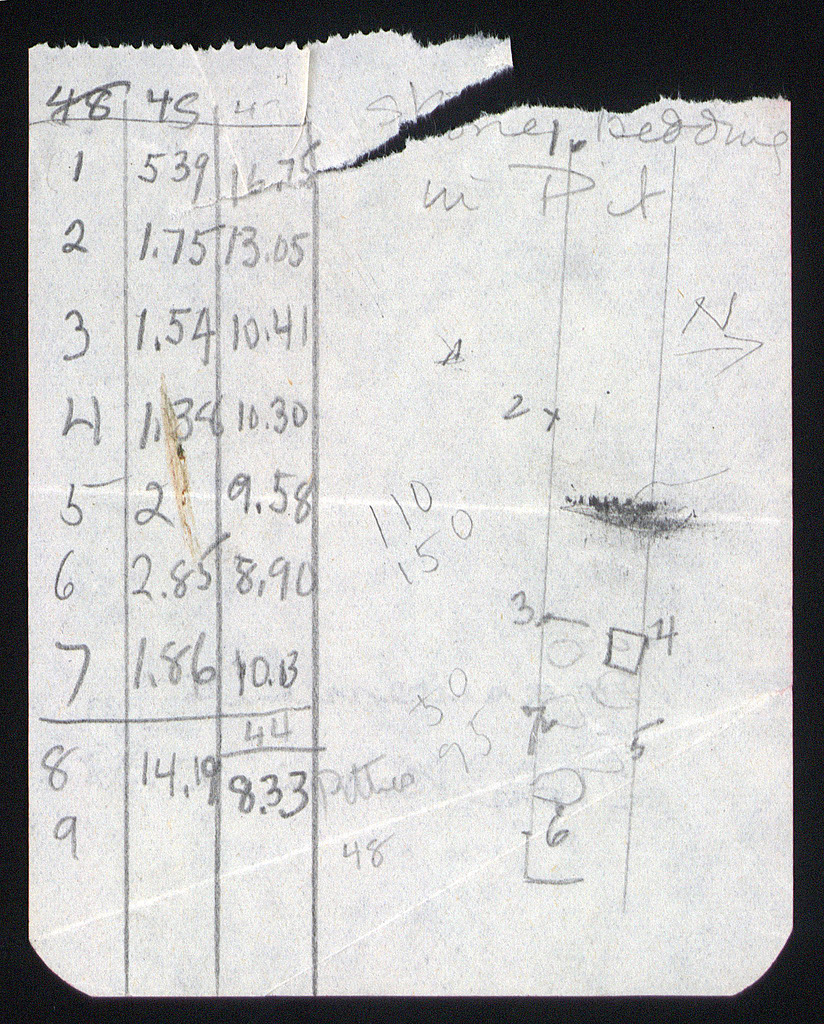 48 45
1 539 16.75
2 1.75 13.05
3 1.54 10.41
4 1.38 10.30
5 2 9.58
6 2.85 8.90
7 1.86 10.13
44
8 14.19 8.33
9
bedding
in Pit
1.
N
2 x
110
150
3. 4
50
95
7 5
6
48